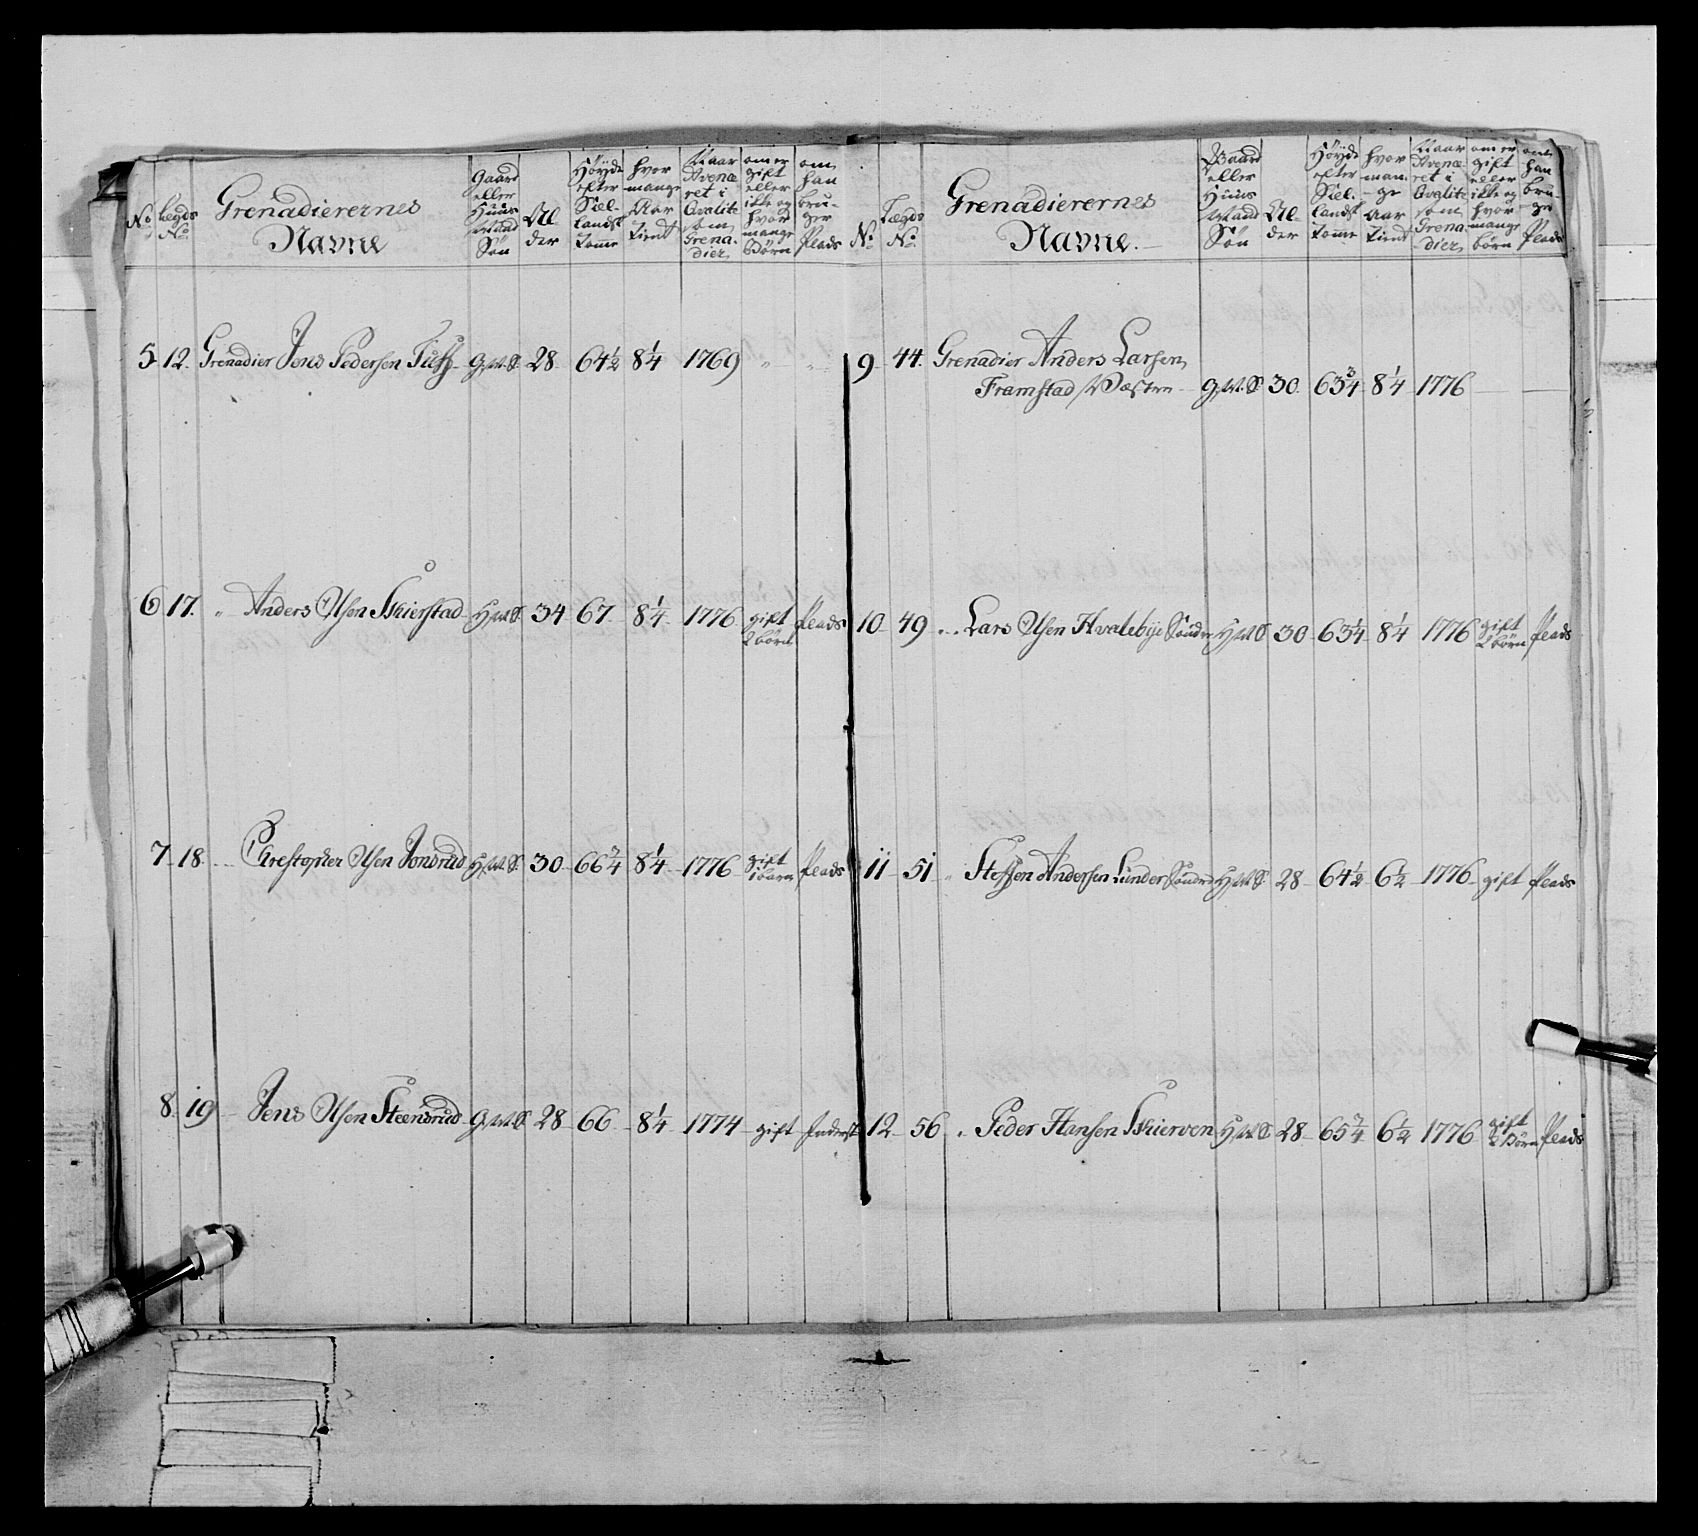 No
Legds No
Grenadierernes Navne
Gaard eller Huus Mand Søn
Al der
Høyde efter Siel- landsk Tomme
hvor mange Aar tient
Naar Avence ret i Qvalite som Grena- dier
om er gift eller ikke og hvor mange Børn
om han bru- ger Plads
5 12. Grenadier Jens Pedersen G.M.S. 28 64½ 8¼ 1769 " "
6 17. " Anders Olsen Skierstad H.M.S. 34 67 8¼ 1776 gift 2 børn Plads
7 18. Christopher Olsen Jonsrud H.M.S. 30 66¾ 8¼ 1776 gift 1 barn Plads
8 19 Jens Olsen Steensrud G.M.S. 28 66 8¼ 1774 gift Inderst
No
Lægds No
Grenadierernes Navne.
Gaard eller Huus Mand Søn
Al der
Høyde efter Siel- landsk tomme
hvor man- ge Aar tient
Naar Avence ret i Qvalite som Grena dier
om er gift eller ikke og hvor mange børn
om han bru- ger Plads
9 44. Grenadier Anders Larsen
Framstad Væstre G.M.S. 30. 63¾ 8¼ 1776
10 49 " Lars Olsen Hvalebye Søndre H.M.S. 30 63¼ 8¼ 1776 gift 2 børn Plads
11 51 " Steffen Andersen Lunder Søndre H.M.S. 28 64½ 6½ 1776 gift Plads
12 56 " Peder Hansen Skierven H.M.S. 28 65¾ 6½ 1776 gift 2 Børn Plads